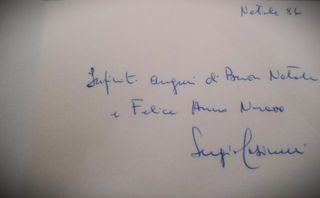 Natale 86
Infiniti auguri di Buon Natale
e Felice Anno Nuovo
Sergio